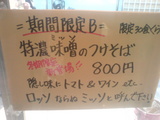 =期間限定B=
限定30食くらい
特濃味噌のつけそば
800円
隠し味にトマト&ワインetc.
ロッソならぬミッソと呼んでください